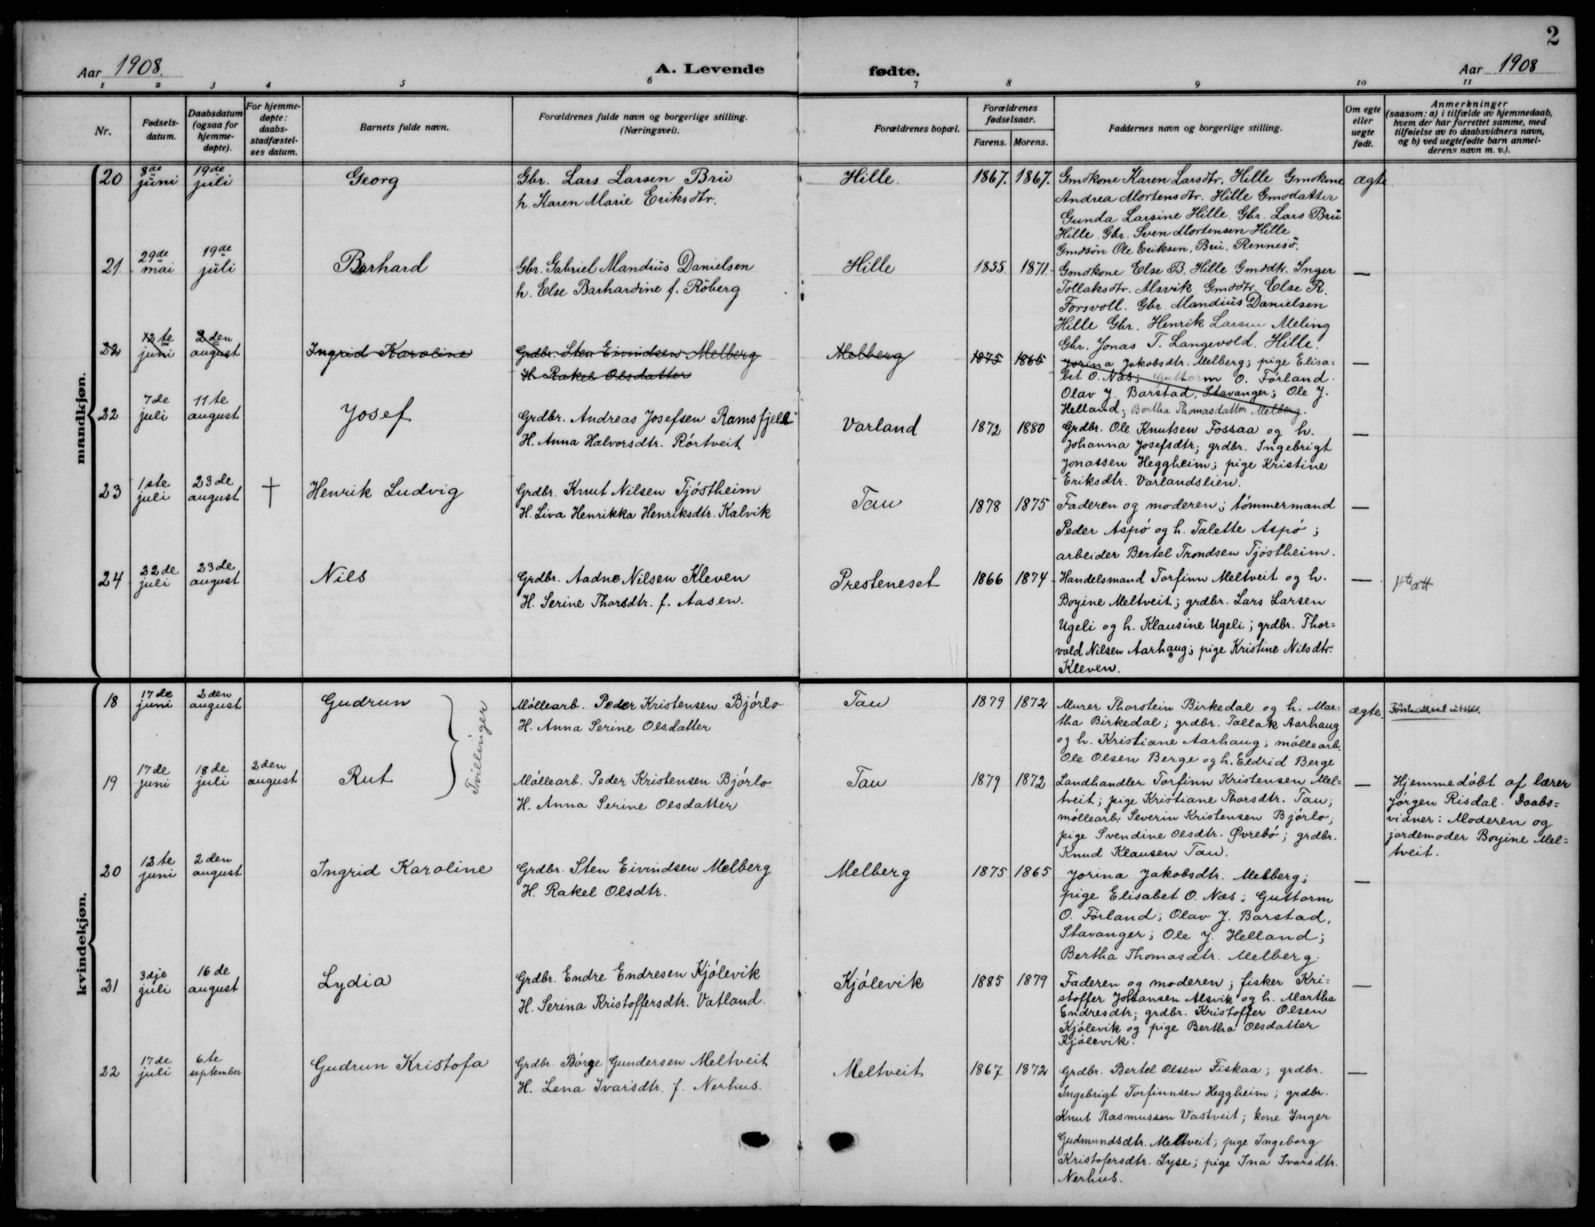 2
Aar 1908.
A. Levende fødte.
Aar 1908
1 2 3 4 5 6 7 8 9 10 11
Nr.
Fødsels-
datum.
Daabsdatum
(ogsaa for
hjemme-
døpte).
For hjemme-
døpte:
daabs-
stadfæstel-
ses datum.
Barnets fulde navn.
Forældrenes fulde navn og borgerlige stilling.
(Næringsvei).
Forældrenes bopæl.
Forældrenes
fødselsaar.
Farens. Morens.
Faddernes navn og borgerlige stilling.
Om egte
eller
uegte
født.
Anmerkninger
(saasom: a) i tilfælde av hjemmedaab,
hvem der har forrettet samme, med
tilføielse av to daabsvidners navn,
og b) ved uegtefødte barn anmel-
derens navn m. v.).
mandkjøn.
20 8de juni 19de juli Georg
Gbr. Lars Larsen Bru
h. Karen Marie Eriksdtr.
Hille. 1867. 1867.
Gmdkone Karen Larsdtr. Hille Gmdkone
Andrea Mortensdtr. Hille Gmdatter
Gunda Larsine Hille. Gbr. Lars Bru
Hille. Gbr. Sven Mortensen Hille
Gmdsön Ole Eriksen. Bru. Rennesö.
ægte
21 29de mai 19de juli Barhard
Gbr. Gabriel Mandius Danielsen
h. Else Barhardine f. Röberg
Hille 1855 1871
Gmdkone Else B. Hille Gmddtr. Inger
Tollaksdtr. Alsvik Gmddtr. Else R.
Forsvoll. Gbr. Mandius Danielsen
Hille Gbr. Henrik Larsen Meling
Gbr. Jonas T. Langevold. Hille.
—
22 12te juni 2den august Ingrid Karoline
Grdbr. Sten Eivindsen Melberg
H. Rakel Olsdatter
Melberg 1875 1865
Jorina Jakobsdtr. Melberg; pige Elisa-
bet O. Næs; Guttorm O. Førland.
Olav J. Barstad, Stavanger; Ole J.
Helland; Bertha Thomasdatter Melberg.
—
22 7de juli 11te august Josef
Grdbr. Andreas Josefsen Ramsfjell
H. Anna Halvorsdtr. Rörtveit
Varland 1872 1880
Grdbr. Ole Knutsen Fossaa og h.
Johanna Josefsdtr; grdbr. Ingebrigt
Jonassen Heggheim; pige Kristine
Eriksdtr. Varlandslien.
—
23 1ste juli 23de august † Henrik Ludvig
Grdbr. Knut Nilsen Tjöstheim
H. Liva Henrikka Henriksdtr. Kalvik
Tau 1878 1875
Faderen og moderen; tömmermand
Peder Aspö og h. Talette Aspö;
arbeider Bertel Trondsen Tjöstheim.
—
24 22de juli 23de august Nils
Grdbr. Aadne Nilsen Kleven
H. Serine Thorsdtr. f. Aasen.
Presteneset 1866 1874
Handelsmand Torfinn Meltveit og h.
Boyine Meltveit; grdbr. Lars Larsen
Ugeli og h. Klausine Ugeli; grdbr. Thor-
vald Nilsen Aarhaug; pige Kristine Nilsdtr.
Kleven.
—
kvindekjøn.
18 17de juni 2den august Gudrun
Møllearb. Peder Kristensen Bjórlo
H. Anna Serine Olsdatter
Tvillinger
Tau 1879 1872
Murer Thorstein Birkedal og h. Mar-
tha Birkedal; grdbr. Tallak Aarhaug
og h. Kristiane Aarhaug; møllearb.
Ole Olsen Berge og h. Eldrid Berge
ægte.
19 17de juni 18de juli 2den august Rut
Møllearb. Peder Kristensen Bjórlo
H. Anna Serine Olsdatter
Tau 1879 1872
Landhandler Torfinn Kristensen Mel-
tveit; pige Kristiane Thorsdtr. Tau;
møllearb. Severin Kristensen Bjórlo;
pige Svendine Olsdtr. Øvrebö; grdbr.
Knud Klausen Tau.
—
Hjemmedöbt af lærer
Jörgen Risdal. Daabs-
vidner: Moderen og
jordemoder Boyine Mel-
tveit.
20 12te juni 2den august Ingrid Karoline
Grdbr. Sten Eivindsen Melberg
H. Rakel Olsdtr.
Melberg 1875 1865
Jorina Jakobsdtr. Melberg;
pige Elisabet O. Næs; Guttorm
O. Förland; Olav J. Barstad,
Stavanger; Ole J. Helland;
Bertha Thomasdtr. Melberg.
—
21 3dje juli 16de august Lydia
Grdbr. Endre Endresen Kjólevik
H. Serina Kristoffersdtr. Vatland.
Kjólevik 1885 1879
Faderen og moderen; fisker Kri-
stoffer Johansen Alsvik og h. Martha
Endresdtr; grdbr. Kristoffer Olsen
Kjólevik og pige Bertha Olsdatter
Kjólevik.
—
22 17de juli 6te september Gudrun Kristofa
Grdbr. Börge Gundersen Meltveit
H. Lena Ivarsdtr. f. Nerhus.
Meltveit 1867 1872
Grdbr. Bertel Olsen Fiskaa; grdbr.
Ingebrigt Torfinnsen Heggheim; grdbr.
Knut Rasmussen Vastveit; kone Inger
Gudmundsdtr. Meltveit; pige Ingeborg
Kristofersdtr. Lyse; pige Ina Ivarsdtr.
Nerhus.
—